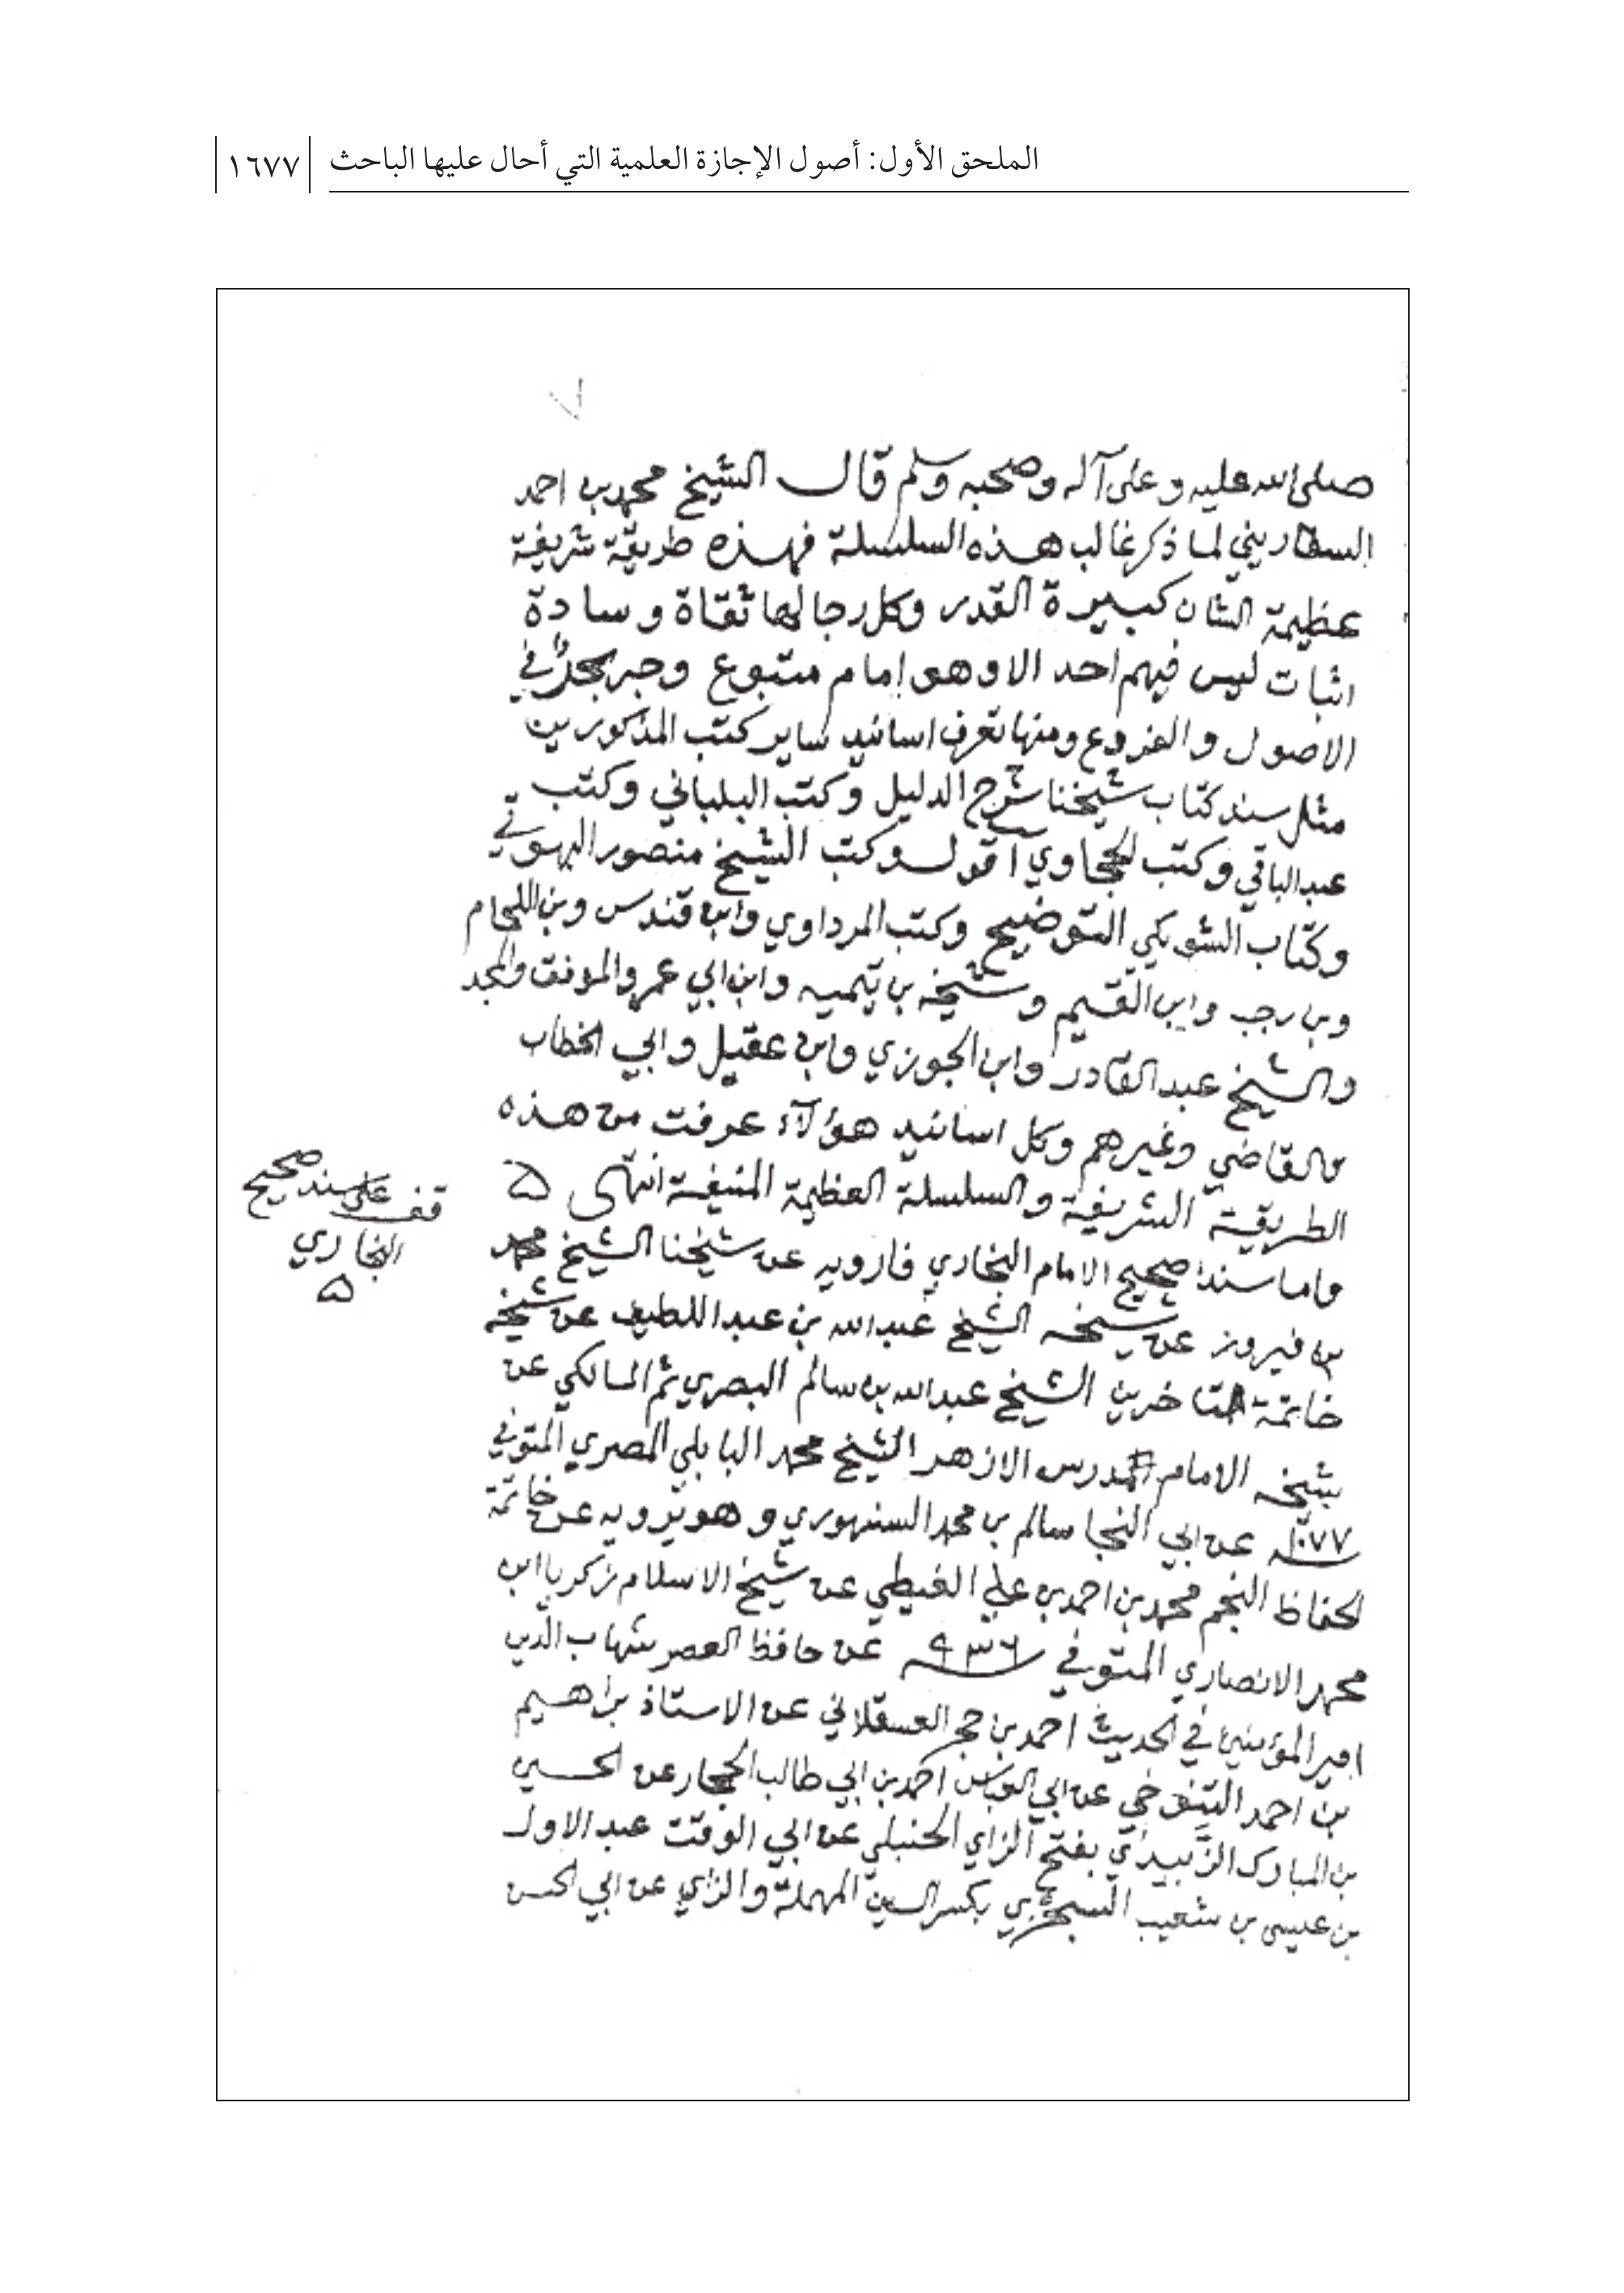 الملحق الأول: أصول الإجازة العلمية التي أحال عليها الباحث
١٦٧٧
٧
صلى الله عليه وعلى آله وصحبه وسلم قال الشيخ محمد بن احمد
السفاريني لما ذكر غالب هذه السلسلة فهذه طريقة شريفة
عظيمة الشان كبيرة القدر وكل رجالها ثقاة وسادة
اثبات ليس فيهم احد الا وهو إمام متبوع وحبر في
الاصول والفروع ومنها تعرف اسانيد ساير كتب المذكورين
مثل سند كتاب شيخنا شرح الدليل وكتب البلباني وكتب
عبد الباقي وكتب الحجاوي اقول وكتب الشيخ منصور البهوتي
وكتاب الشويكي التوضيح وكتب المرداوي وابن قندس وبن اللحام
وبن رجب وابن القيم وشيخه بن تيميه وابن ابي عمر والموفق والمجد
والشيخ عبد القادر وابن الجوزي وابن عقيل وابي الخطاب
والقاضي وغيرهم وكل اسانيد هؤلآء عرفت من هذه
الطريقة الشريفة والسلسلة العظيمة المنيفة انتهى ه
قف على سند صحيح
البخاري
ه
واما سند صحيح الامام البخاري فارويه عن شيخنا الشيخ محمد
بن فيروز عن شيخه الشيخ عبد الله بن عبد اللطيف عن شيخه
خاتمة المتاخرين الشيخ عبد الله بن سالم البصري ثم المالكي عن
شيخه الامام مدرس الازهر الشيخ محمد البابلي المصري المتوفي
١٠٧٧ عن ابي النجا سالم بن محمد السنهوري وهو يرويه عن خاتمة
الحفاظ النجم محمد بن احمد بن علي الغيطي عن شيخ الاسلام زكريا ابن
محمد الانصاري المتوفي ٩٣٦ عن حافظ العصر شهاب الدين
امير المؤمنين في الحديث احمد بن حجر العسقلاني عن الاستاذ براهيم
بن احمد التنوخي عن ابي العباس احمد بن ابي طالب الحجار عن الحسين
بن المبارك الزَّبيدي بفتح الزاي الحنبلي عن ابي الوقت عبد الاول
بن عيسى بن شعيب السجزي بكسر السين المهملة والزاي عن ابي الحسن